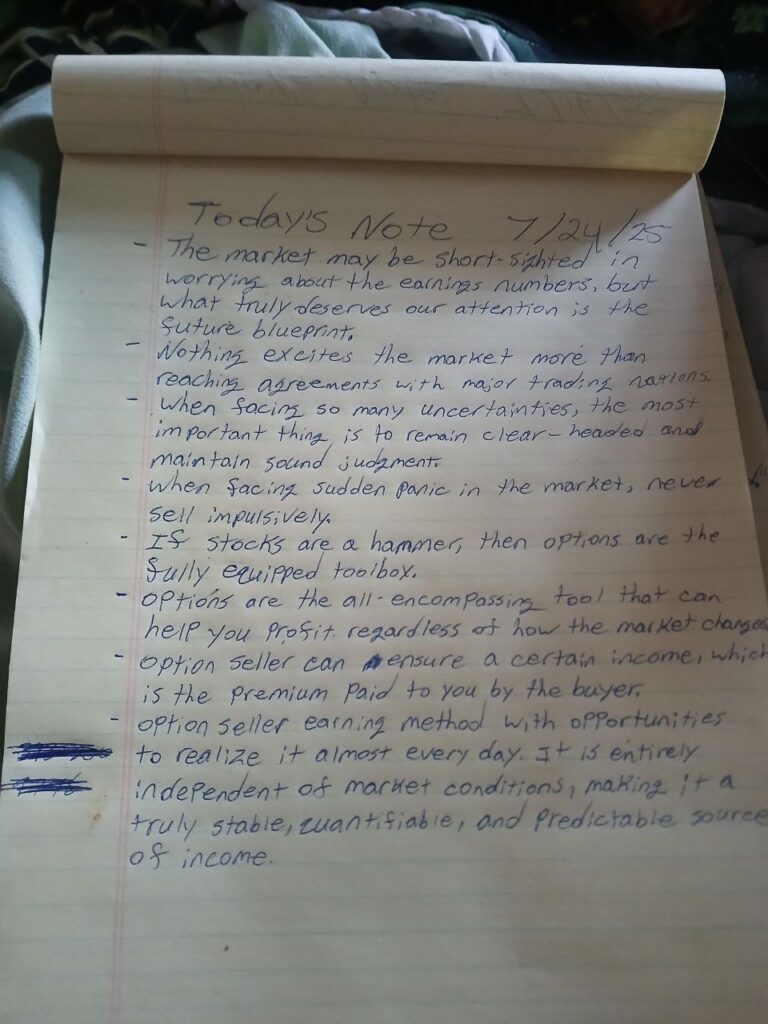 Today's Note 7/24/25
- The market may be short-sighted in
worrying about the earnings numbers, but
what truly deserves our attention is the
future blueprint.
- Nothing excites the market more than
reaching agreements with major trading nations.
- When facing so many uncertainties, the most
important thing is to remain clear-headed and
maintain sound judgment.
- When facing sudden panic in the market, never
sell impulsively.
- If stocks are a hammer, then options are the
fully equipped toolbox.
- Options are the all-encompassing tool that can
help you profit regardless of how the market changes
- Option seller can ensure a certain income, which
is the premium paid to you by the buyer.
- Option seller earning method with opportunities
to realize it almost every day. It is entirely
independent of market conditions, making it a
truly stable, quantifiable, and predictable source
of income.